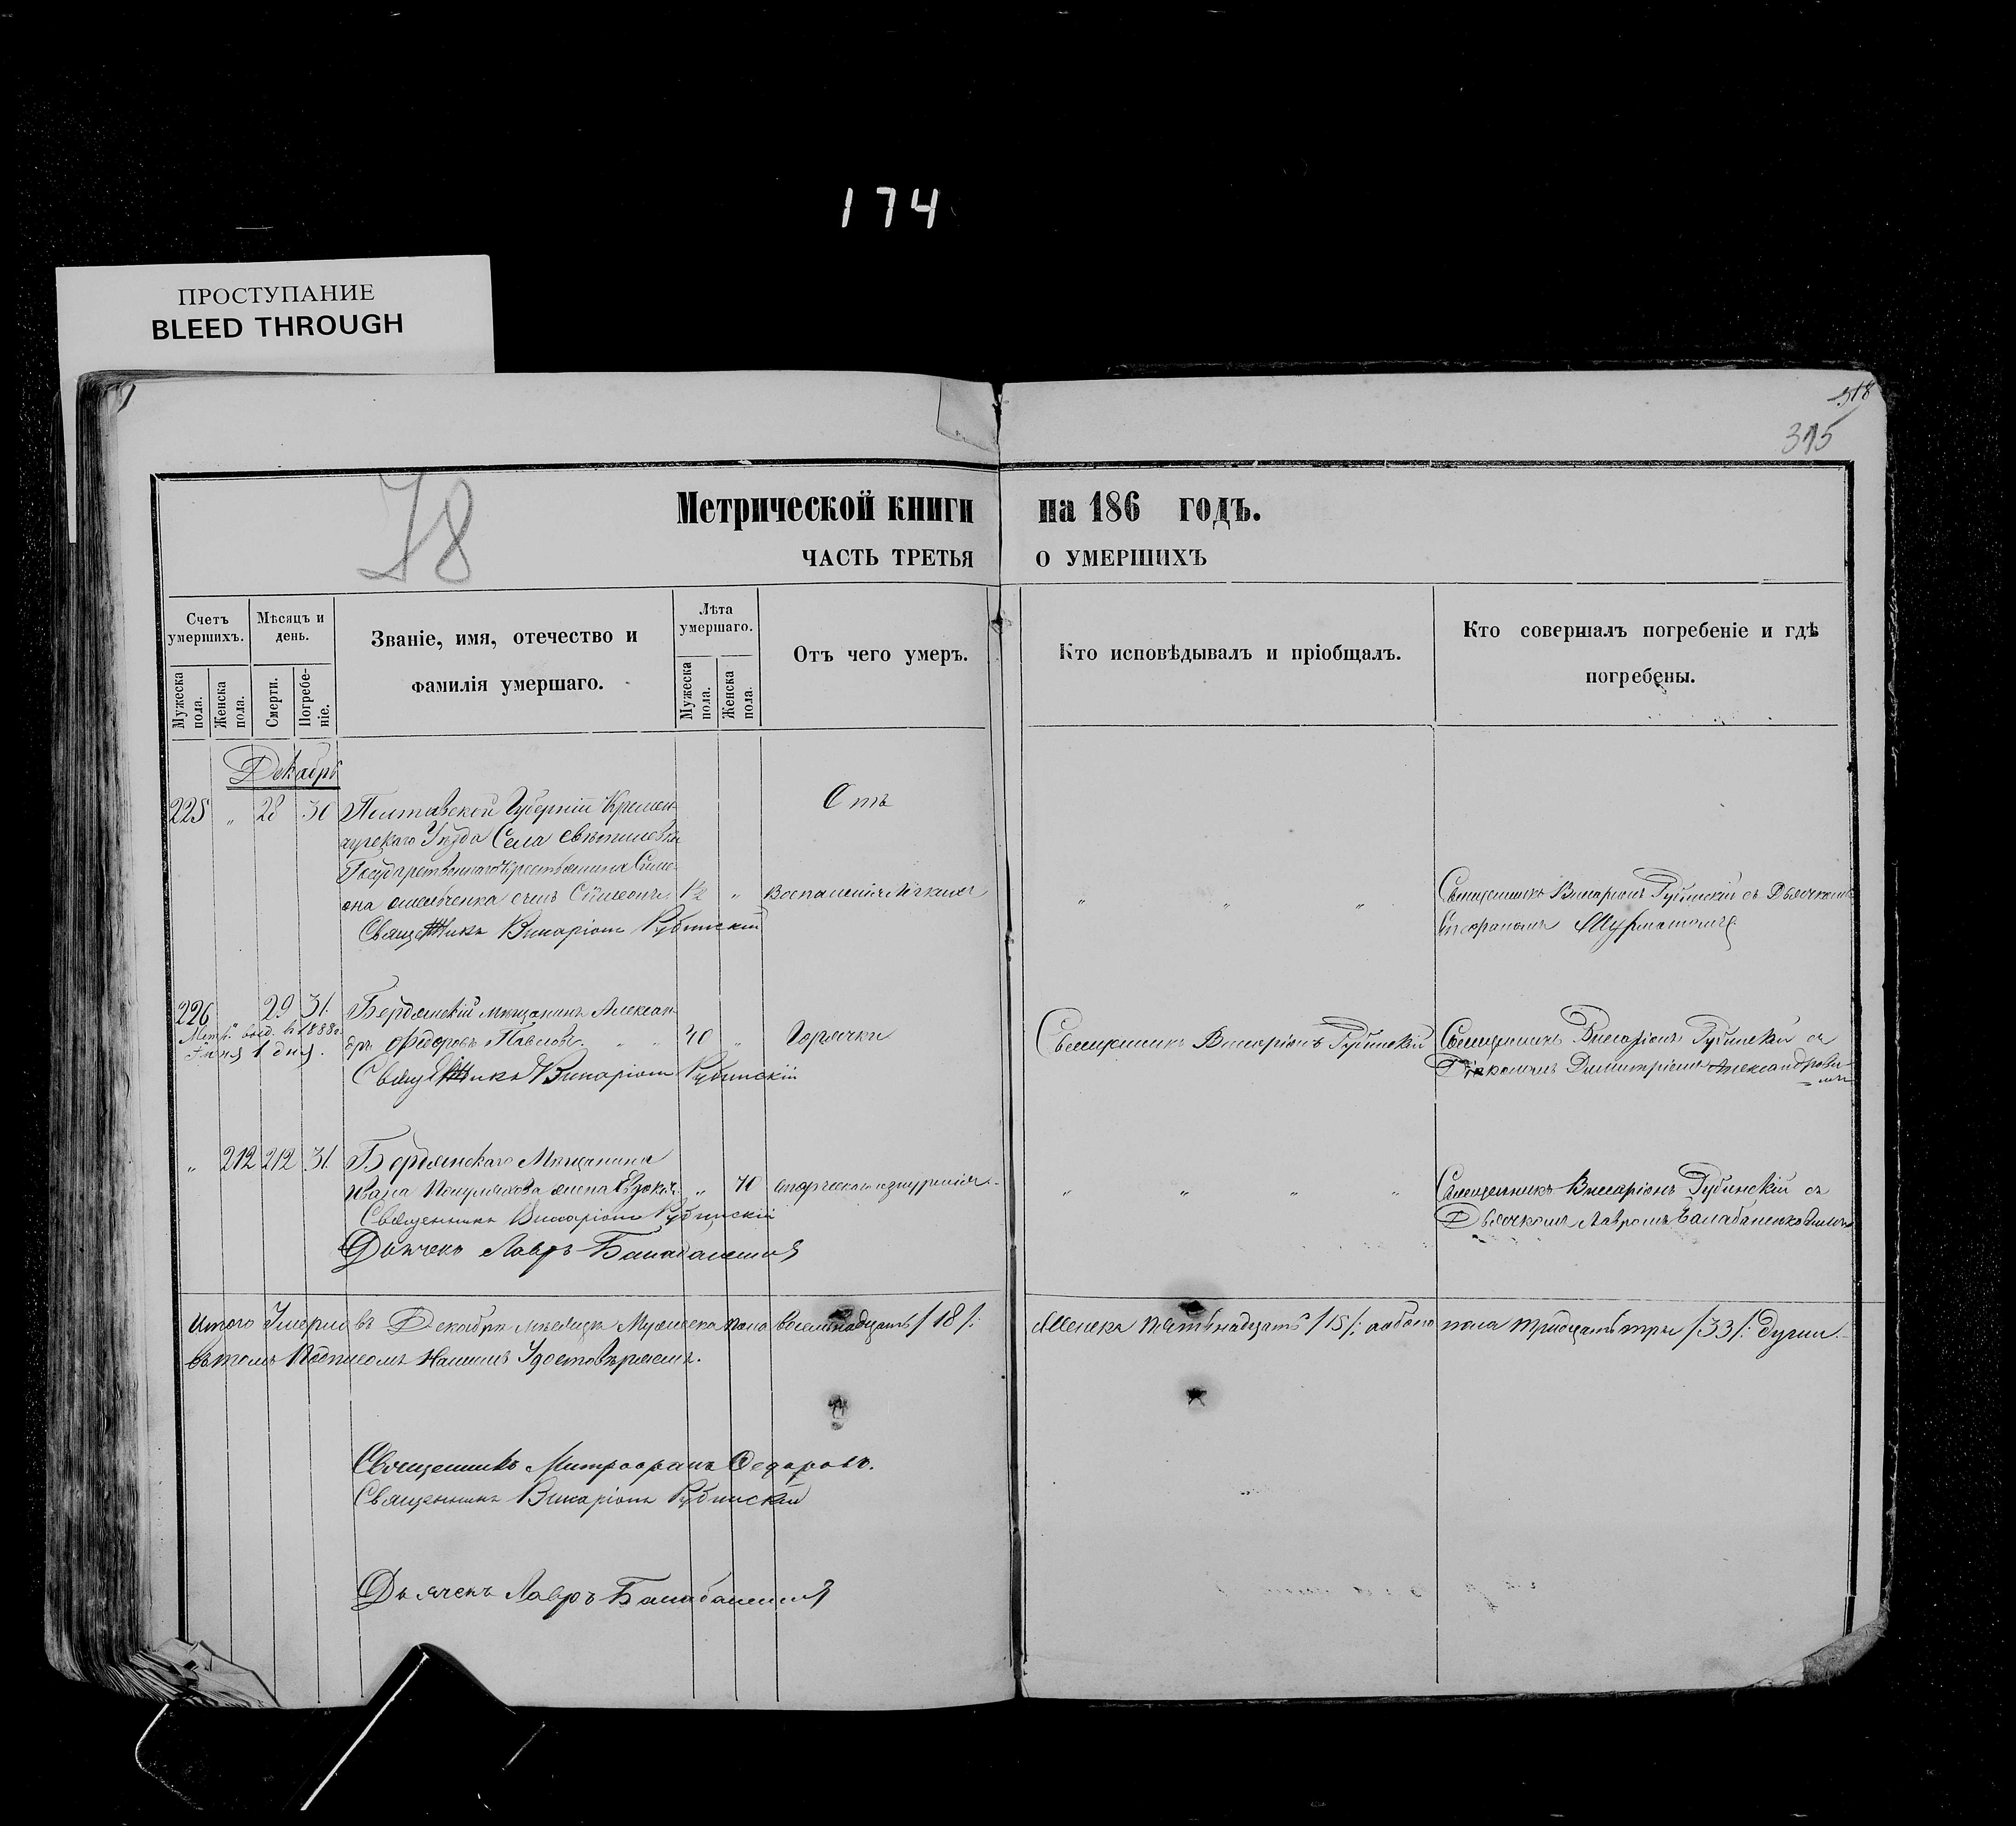 174
ПРОСТУПАНИЕ
BLEED THROUGH
518
315
78
Метрической книги на 186 годъ.
ЧАСТЬ ТРЕТЬЯ О УМЕРШИХЪ
Счетъ умершихъ.
Мѣсяцъ и день.
Званіе, имя, отечество и фамилія умершаго.
Лѣта умершаго.
Отъ чего умеръ.
Кто исповѣдывалъ и пріобщалъ.
Кто совершалъ погребеніе и гдѣ погребены.
Мужеска пола.
Женска пола.
Смерти.
Погребеніе.
Мужеска пола.
Женска пола.
Декабрь
225 " 28 30 Полтавской Губерніи Кремен- Отъ
чугскаго Уѣзда Села
Государственнаго крестьянина Симе-
она сынъ Симеонъ " Воспаленія Легкихъ " " " Священникъ Висаріонъ Рубинскій съ Дьячкомъ
Священникъ Висаріонъ Рубинскій
226 29 31 Бердянскій мѣщанинъ Алексан-
Метр. выд. 1888 г.
Іюня 1 дня.
дръ Федоровъ Павловъ " " 40 " Горячки Священникъ Висаріонъ Рубинскій Священникъ Висаріонъ Рубинскій съ
Священникъ Висаріонъ Рубинскій Діакономъ Димитріемъ Александрови-
чемъ
" 212 212 31 Бердянскаго Мѣщанина
Ивана жена Евдокія " 40 " " " " Священникъ Висаріонъ Рубинскій съ
Священникъ Висаріонъ Рубинскій Дьячкомъ Лавромъ
Дьячекъ Лавръ
Итого Умерло въ Декабрѣ мѣсяцѣ Мужеска пола восемнадцать /18/: Женска пятьнадцать /15/: обоего пола тридцать три /33/: души.
въ томъ подписомъ Нашимъ Удостовѣряемъ.
Священникъ Митрофанъ Федоровъ.
Священникъ Висаріонъ Рубинскій
Дьячекъ Лавръ